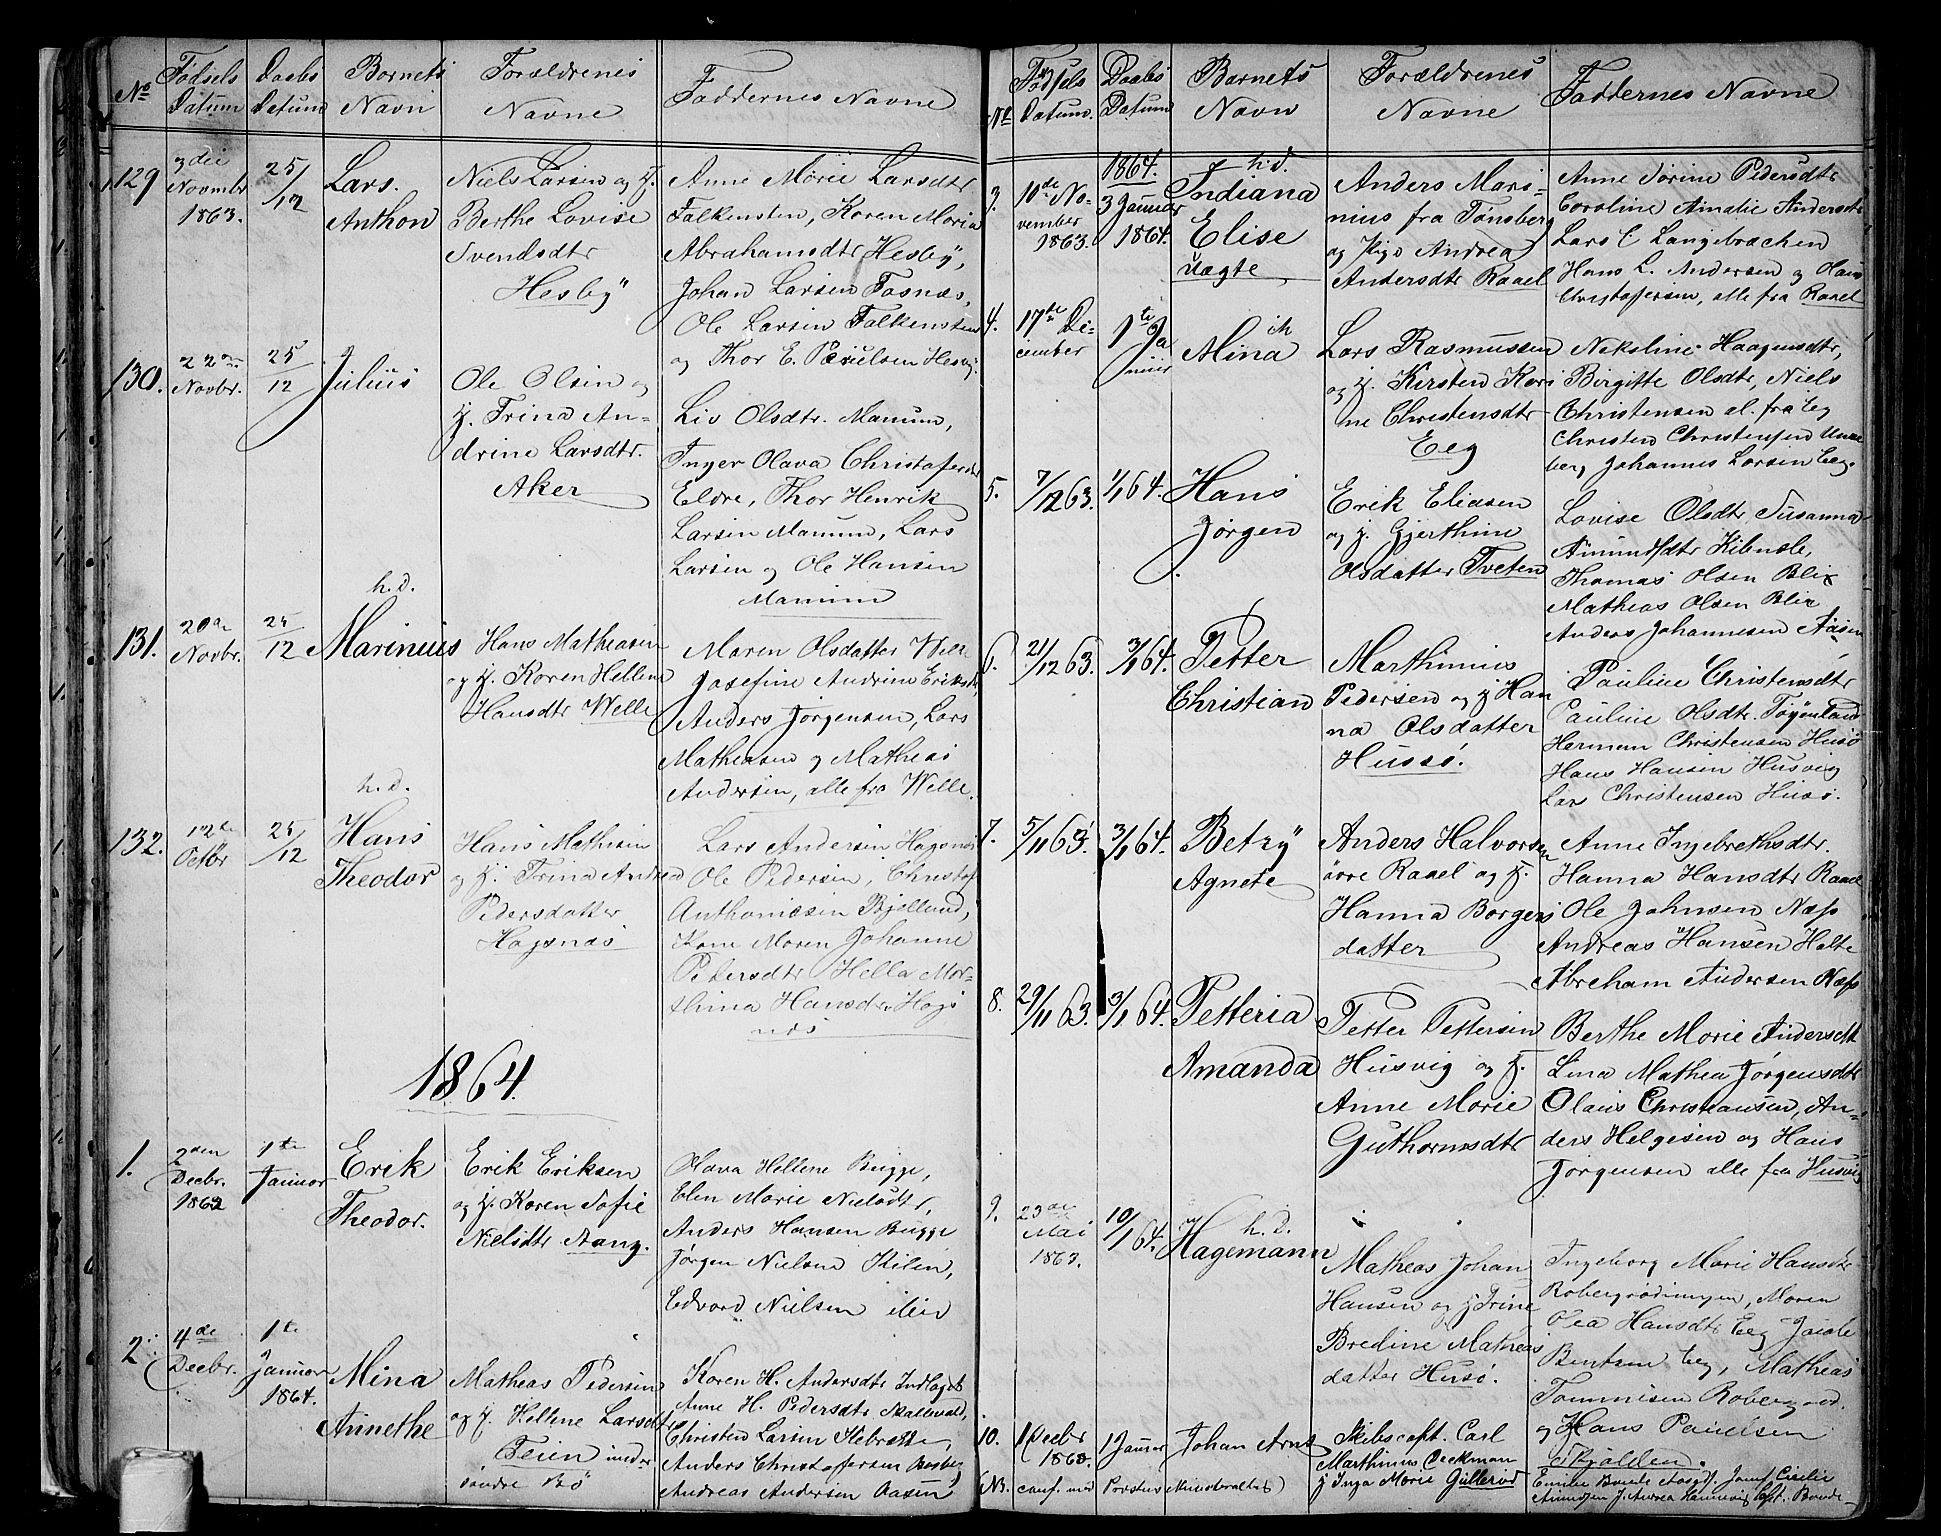 No
Fødsels Datum
Daabs Datum
Barnets Navn
Forældrenes Navne
Faddernes Navne
129
3die Novmbr 1863.
25/12
Lars. Anthon
Niels Larsen og H.
Berthe Lovise
Svendsdtr
Hesby
Anne Marie Larsdtr
Falkensten, Karen Maria
Abrahamsdtr Hesby,
Johan Larsen Fosnæs,
Ole Larsen Falkensten
og Thor E. Paulsen Hesby.
130.
22de Novbr.
25/12
Julius
Ole Olsen og
H. Trina An-
drine Larsdtr.
Aker
Liv Olsdtr. Manum,
Inger Olava Christofersdtr
Eldre, Thor Henrik
Larsen Manum, Lars
Larsen og Ole Hansen
Manum
131.
Novbr.
25/12
h. d.
Marinius
Hans Matheasen
og H. Karen Hellene
Hansdtr Welle
Maren Olsdatter Welle
Josefine Andrine Eriksdtr
Anders Jørgensen, Lars
Matheasen og Matheas
Andersen, alle fra Welle.
132.
12te Octbr
25/12
h. d.
Hans Theodor
Hans Mathesen
og H. Trina Andrea
Pedersdatter
Hagsnæs
Lars Andersen Hagsnæs
Ole Pedersen, Christof
Anthonisen Bjelland,
Kone Maren Johanne
Petersdtr Hella Mar-
thina Hansdtr Hags
næs
1864.
1.
Decbr.
1te Januar
Erik Theodor.
Erik Eriksen
og H. Karen Sofie
Nielsdtr Aang.
Olava Hellene Bugge,
Elen Marie Nielsdtr,
Anders Hansen Bugge
Jørgen Nielsen Kilen,
Edvard Nielsen
2.
4de Decbr.
1te Januar 1864.
Mina Annethe
Matheas Pedersen
og H. Hellene Larsdtr
Teien under
søndre Bø
Karen H. Andersdtr Indlaget
Anne H. Pedersdtr Skallevold,
Christen Larsen
Anders Christofersen Basberg
Andreas Andersen Aasen
No
Fødsels Datum.
Daabs Datum
Barnets Navn
Forældrenes Navne
Faddernes Navne
3.
10de November 1863.
1864.
3 Januar 1864.
h. d.
Indiana Elise
uægte
Anders Mari-
nius fra Tønsberg
og Pige Andrea
Andersdtr Raael
Anne Sorine Pedersdtr
Caroline Amalie Andersdtr
Lars C Langebrachen
Hans L. Andersen og Hans
Christofersen, alle fra Raael
4.
17te December
1te Januar
Mina
Lars Rasmussen
og H. Kirsten Kari
ne Christensdtr
Eeg
Nekoline Haagensdtr,
Birgitte Olsdtr, Niels
Christensen al. fra Eeg
Christen Christensen Unne
berg Johannes Larsen Eeg.
5.
7/12 63.
1/1 64.
Hans Jørgen
Erik Eliasen
og H. Gjerthine
Olsdatter Tveten
Lovise Olsdtr Susanna
Amundsdtr
Thomas Olsen Blix
Mathias Olsen Blix
Anders Johannesen Aasen
6.
21/12 63.
3/1 64.
Petter Christian
Marthinius
Pedersen og H Han
na Olsdatter
Hussø.
Pauline Christensdtr
Pauline Olsdtr.
Herman Christensen Husø
Hans Hansen Husvig
Lar Christensen Husø.
7.
5/11 63.
3/1 64.
Betzy Agnete
Anders Halvorsen
øvre Raael og H.
Hanna Borgers
datter
Anne Ingebrethsdtr.
Hanna Hansdtr Raael
Ole Johnsen Næss
Andreas Hansen Holte
Abraham Andersen Næss
8.
29/11 63.
3/1 64.
Petteria Amanda
Petter Pettersen
Husvig og H.
Anne Marie
Guthormsdtr
Berthe Marie Andersdtr
Lina Mathea Jørgensdtr
Olaus Christiansen, An-
ders Helgesen og Hans
Jørgensen alle fra Husvig
9.
23de Mai 1863.
10/1 64.
h. d.
Hagemann
Matheas Johan
Hansen og H Trine
Bredine Matheas
datter Husø.
Ingeborg Marie Hansdtr
Robergrødningen, Maren
Olea Hansdtr Eeg Jacob
Bentsen Eeg, Matheas
Tommisen Robergrød.
og Hans Paulsen
Skjolden.
10.
1 Decbr 1863.
1 Januar
Johan Arnt
Skibscapt. Carl
Marthinus Beckman
H Inga Marie Gullerød
(NB. conf. med